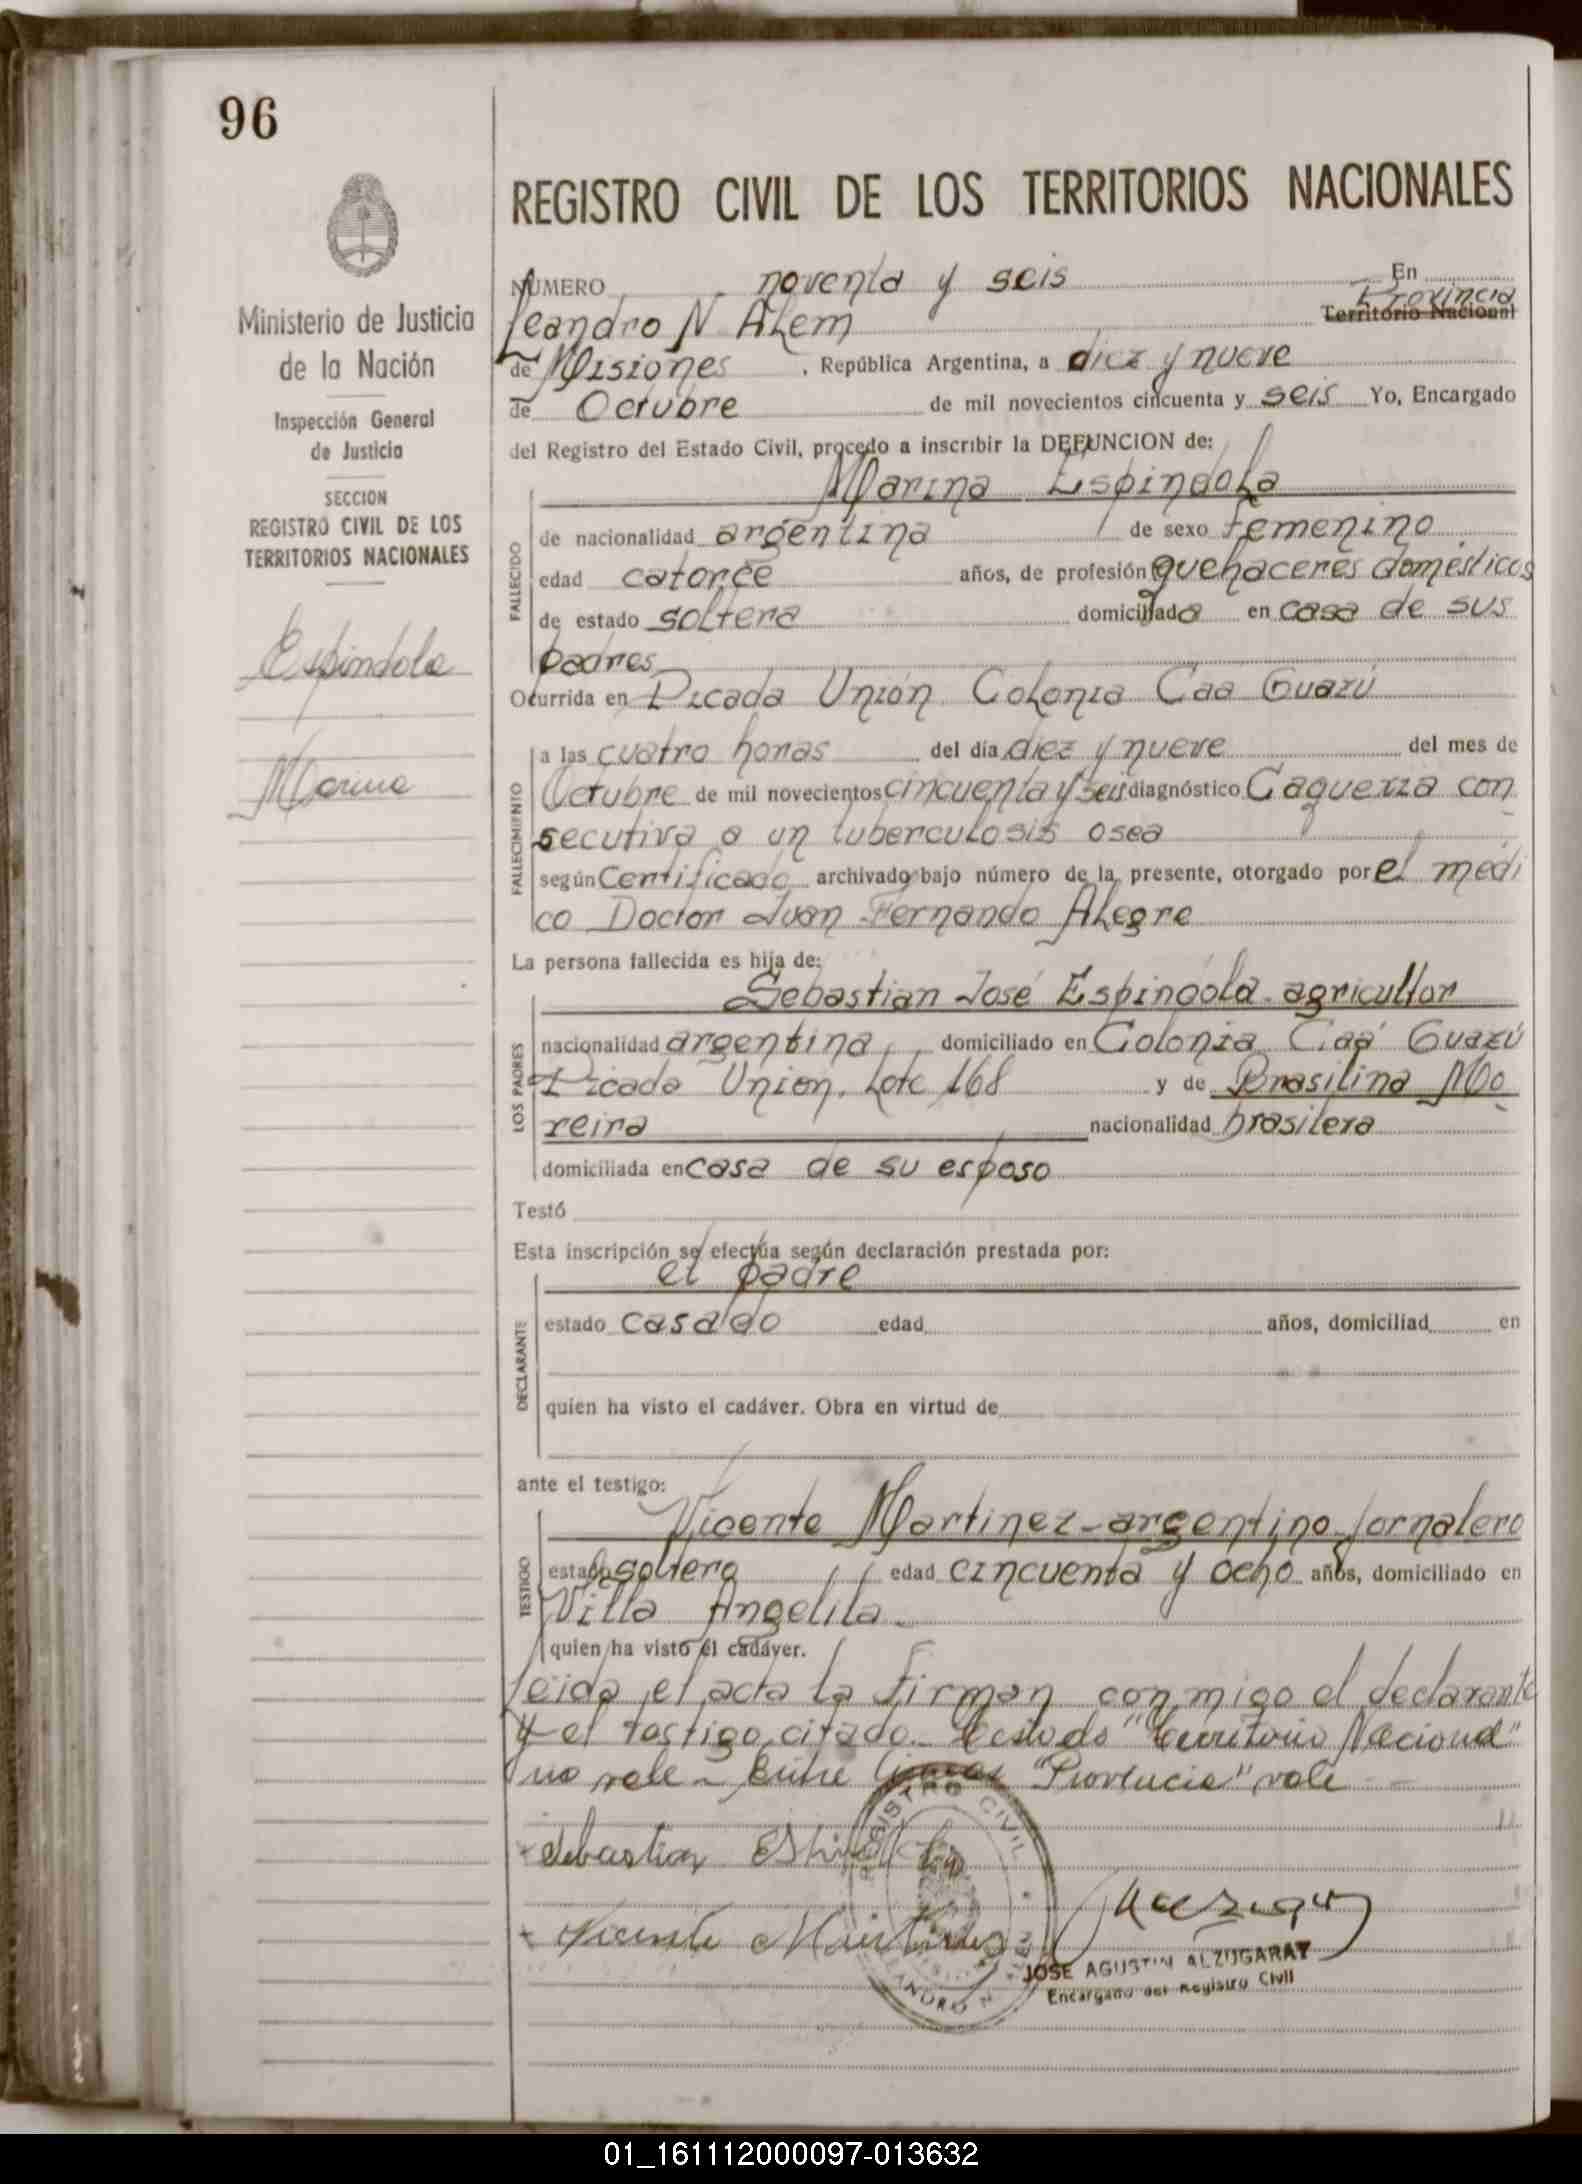 96
REGISTRO CIVIL DE LOS TERRITORIOS NACIONALES
Ministerio de Justicia
de la Nación
Inspección General
de Justicia
SECCION
REGISTRO CIVIL DE LOS
TERRITORIOS NACIONALES
Espindola
Marina
NUMERO noventa y seis En
Leandro N Alem Provincia Territorio Nacional
de Misiones , República Argentina, a diez y nueve
de Octubre de mil novecientos cincuenta y seis Yo, Encargado
del Registro del Estado Civil, procedo a inscribir la DEFUNCION de:
Marina Espindola
FALLECIDO
de nacionalidad argentina de sexo femenino
edad catorce años, de profesión quehaceres domésticos
de estado soltera domiciliada en casa de sus
padres
Ocurrida en Picada Unión Colonia Caá Guazú
FALLECIMIENTO
a las cuatro horas del día diez y nueve del mes de
Octubre de mil novecientos cincuenta y seis diagnóstico Caquexia con
secutiva a un tuberculosis osea
según Certificado archivado bajo número de la presente, otorgado por el medi
co Doctor Juan Fernando Alegre
La persona fallecida es hija de:
Sebastian José Espindola - agricultor
LOS PADRES
nacionalidad argentina, domiciliado en Colonia Caá Guazú
Picada Union, Lote 168 y de Brasilina Mo
reira nacionalidad brasilera
domiciliada en casa de su esposo
Testó
Esta inscripción se efectúa según declaración prestada por:
el padre
DECLARANTE
estado casado edad años, domiciliad en
quien ha visto el cadáver. Obra en virtud de
ante el testigo:
Vicente Martinez - argentino - Jornalero
TESTIGO
estado soltero edad cincuenta y ocho años, domiciliado en
Villa Angelita -
quien ha visto el cadáver.
Leida el acta la firman conmigo el declarante
y el testigo citado. Testado "Territorio Nacional"
no vale - Entre líneas "Provincia" vale -
Sebastian
Vicente Martinez
REGISTRO CIVIL
LEANDRO N. ALEM
JOSE AGUSTIN ALZUGARAY
Encargado del Registro Civil
01_161112000097-013632